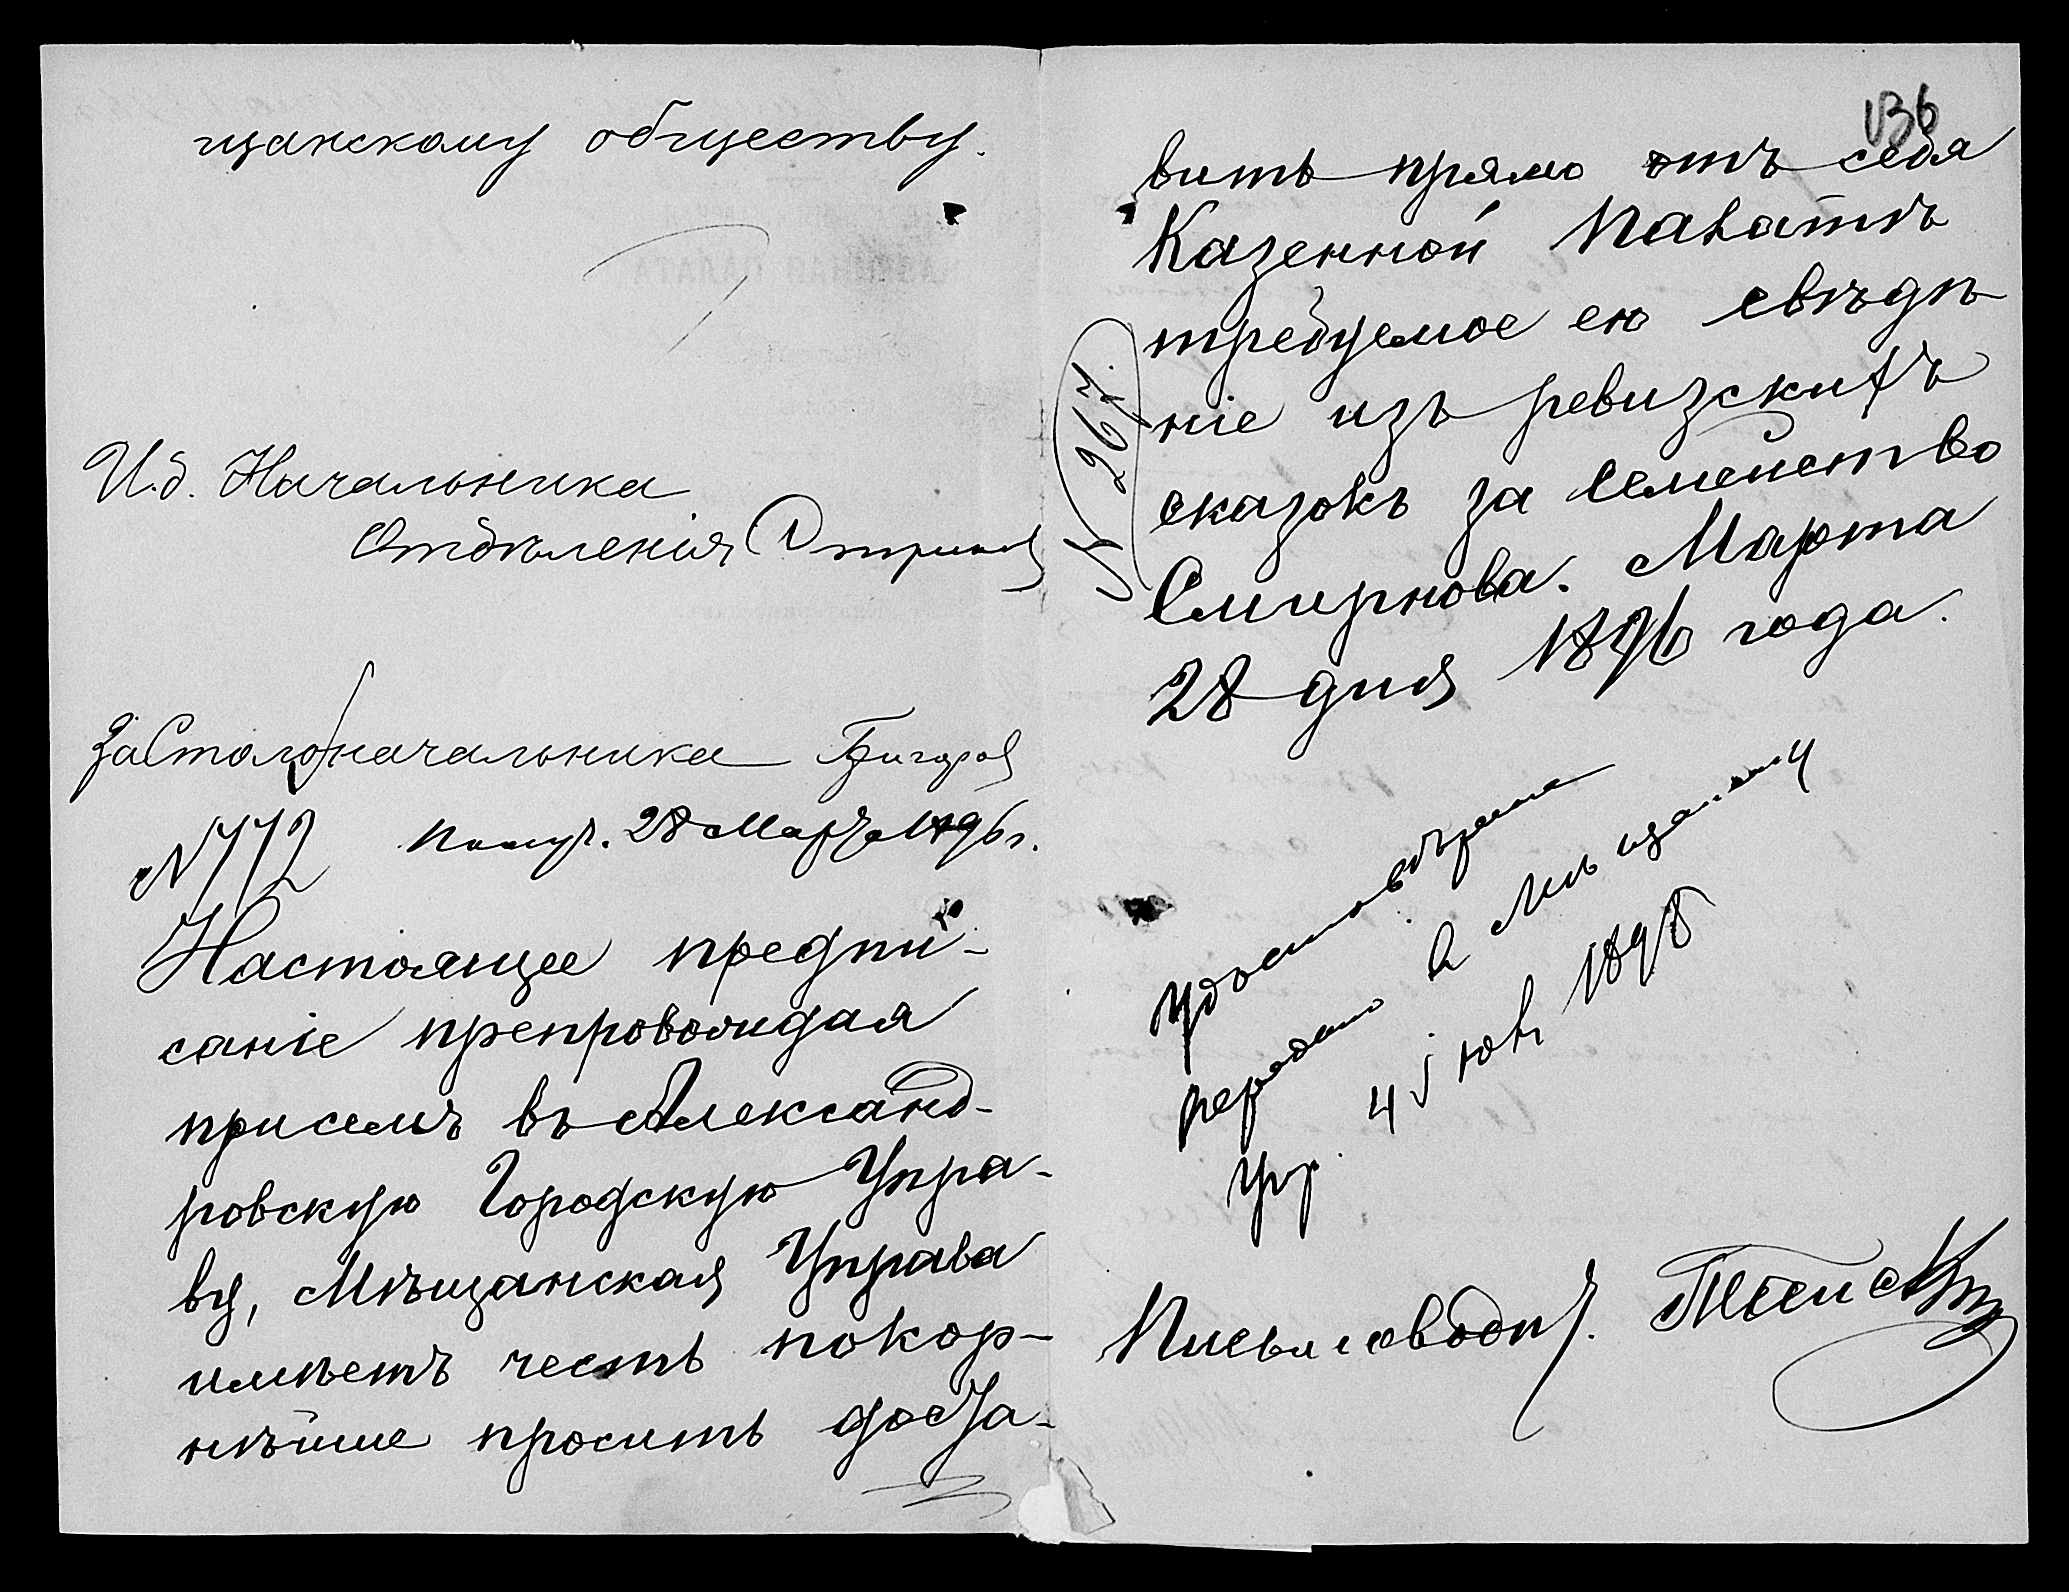 щанскому обществу.
И.д. Начальника
Отдѣленія
За Столоначальника Григоров
№ 772 Получ. 28 Марта 1896 г.
Настоящее предпи-
саніе препровождая
при семъ въ Александ-
ровскую Городскую Упра-
ву, Мѣщанская Управа
имѣетъ честь покор-
нѣйше просить доста-
136
вить прямо отъ себя
Казенной Палатѣ
требуемое ею свѣдѣ
ніе изъ ревизскихъ
сказокъ за семейство
Смирнова. Марта
28 дня 1896 года.
№ 267.
Удостовѣреніе
передано в Мѣщанскую
Упр. 4 Іюня 1898
Письмоводит.